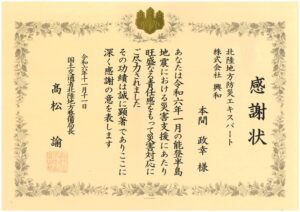 感謝状
北陸地方防災エキスパート
株式会社 興和
本間 政幸 様
あなたは令和六年一月の能登半島
地震における災害支援にあたり
旺盛なる責任感をもって災害対応に
ご尽力されました
その功績は誠に顕著でありここに
深く感謝の意を表します
令和六年十一月十一日
国土交通省北陸地方整備局長
髙松 諭